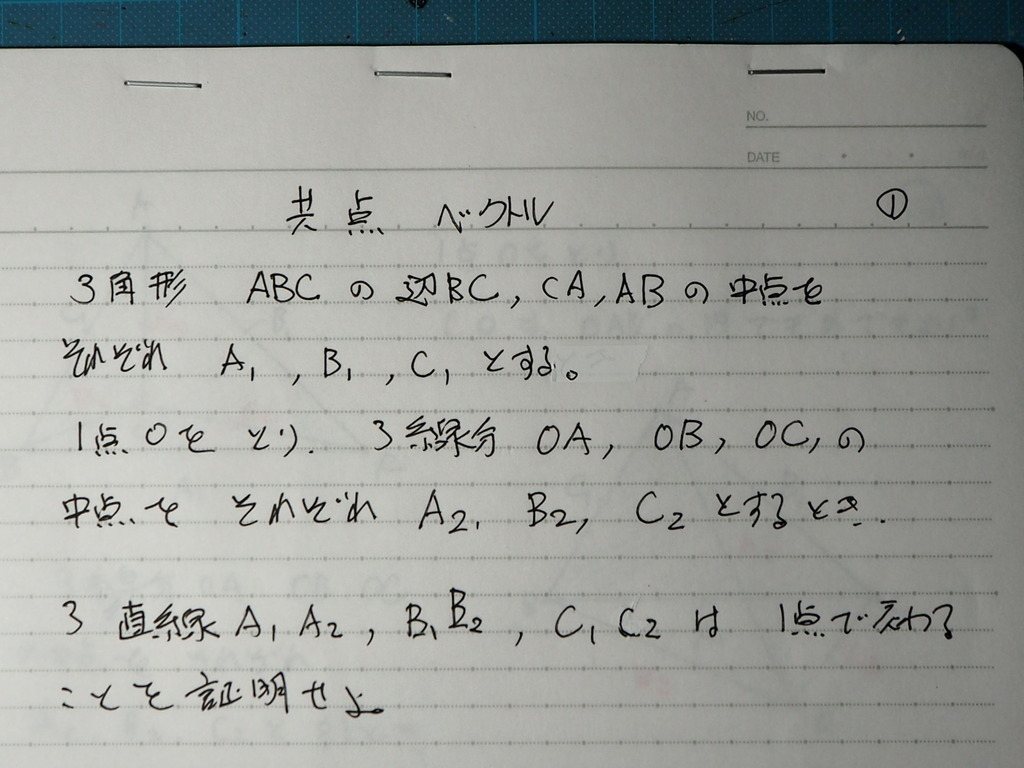 NO.
DATE
共点 ベクトル ①
3角形 ABCの辺BC, CA, ABの中点を
それぞれ A₁, B₁, C₁とする。
1点Oをとり. 3線分 OA, OB, OC, の
中点を それぞれ A₂, B₂, C₂とするとき.
3直線 A₁A₂, B₁B₂, C₁C₂は 1点で交わる
ことを証明せよ。